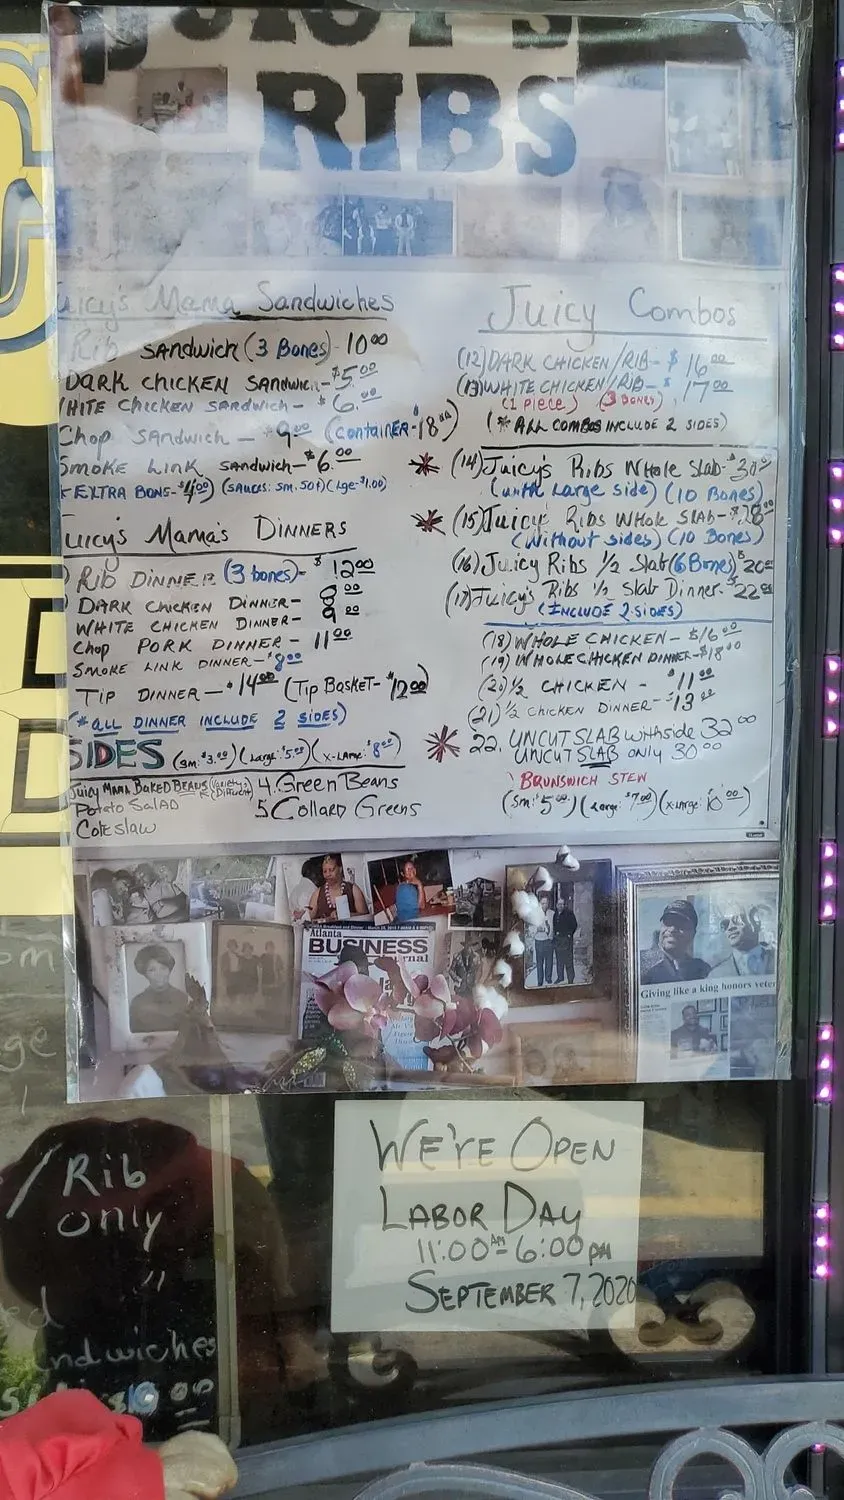 RIBS
Juicy's Mama Sandwiches
Rib Sandwich (3 Bones) - 10⁰⁰
DARK CHICKEN SANDWICH - $5.⁰⁰
WHITE CHICKEN SANDWICH - $6.⁰⁰
Chop SANDWICH - $9⁰⁰ (CONTAINER - $18⁰⁰)
SMOKE LINK SANDWICH - $6.⁰⁰
* EXTRA BONS - $4⁰⁰) (SAUCES: SM. 50¢) (Lge - $1.00)
Juicy's Mama's DINNERS
RIB DINNER (3 bones) - $12⁰⁰
DARK CHICKEN DINNER -
WHITE CHICKEN DINNER - 9⁰⁰
Chop PORK DINNER - 11⁰⁰
SMOKE LINK DINNER - $8⁰⁰
TIP DINNER - $14⁰⁰ (TIP BASKET - $12⁰⁰
(* ALL DINNER INCLUDE 2 SIDES)
SIDES (Sm. $3.⁰⁰) (Large: $5.⁰⁰) (X-LARGE: $8⁰⁰)
Juicy Mama BAKED BEANS
Potato SalAD
Coleslaw
4. Green Beans
5 Collard Greens
Juicy Combos
(12) DARK CHICKEN/RIB - $16⁰⁰
(13) WHITE CHICKEN/RIB - $17⁰⁰
(1 PIECE) (3 BONES)
(* ALL COMBOS INCLUDE 2 SIDES)
* (14) Juicy's Ribs Whole Slab - $30⁰⁰
(with Large side) (10 Bones)
* (15) Juicy Ribs Whole SLAB -
(Without sides) (10 Bones)
(16) Juicy Ribs 1/2 Slab (6 Bones) $20⁰⁰
(17) Juicy's Ribs 1/2 Slab Dinner - $22⁰⁰
(INCLUDE 2 SIDES)
(18) WHOLE CHICKEN - $16⁰⁰
(19) WHOLE CHICKEN DINNER - $18⁰⁰
(20) 1/2 CHICKEN - $11⁰⁰
(21) 1/2 CHICKEN DINNER - $13⁰⁰
* 22. UNCUT SLAB with side 32⁰⁰
UNCUT SLAB only 30⁰⁰
BRUNSWICH STEW
(Sm: $5⁰⁰) (Large: $7⁰⁰) (X-Large: $10⁰⁰)
Atlanta
BUSINESS
Giving like a king honors veter
/Rib
only
"
ndwiches
WE'RE OPEN
LABOR DAY
11:00 AM - 6:00 PM
SEPTEMBER 7, 2020